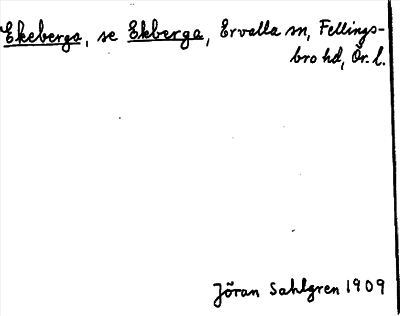 Ekeberga, se Ekberga, Ervalla sn, Fellings-
bro hd, Ör. l.
Jöran Sahlgren 1909